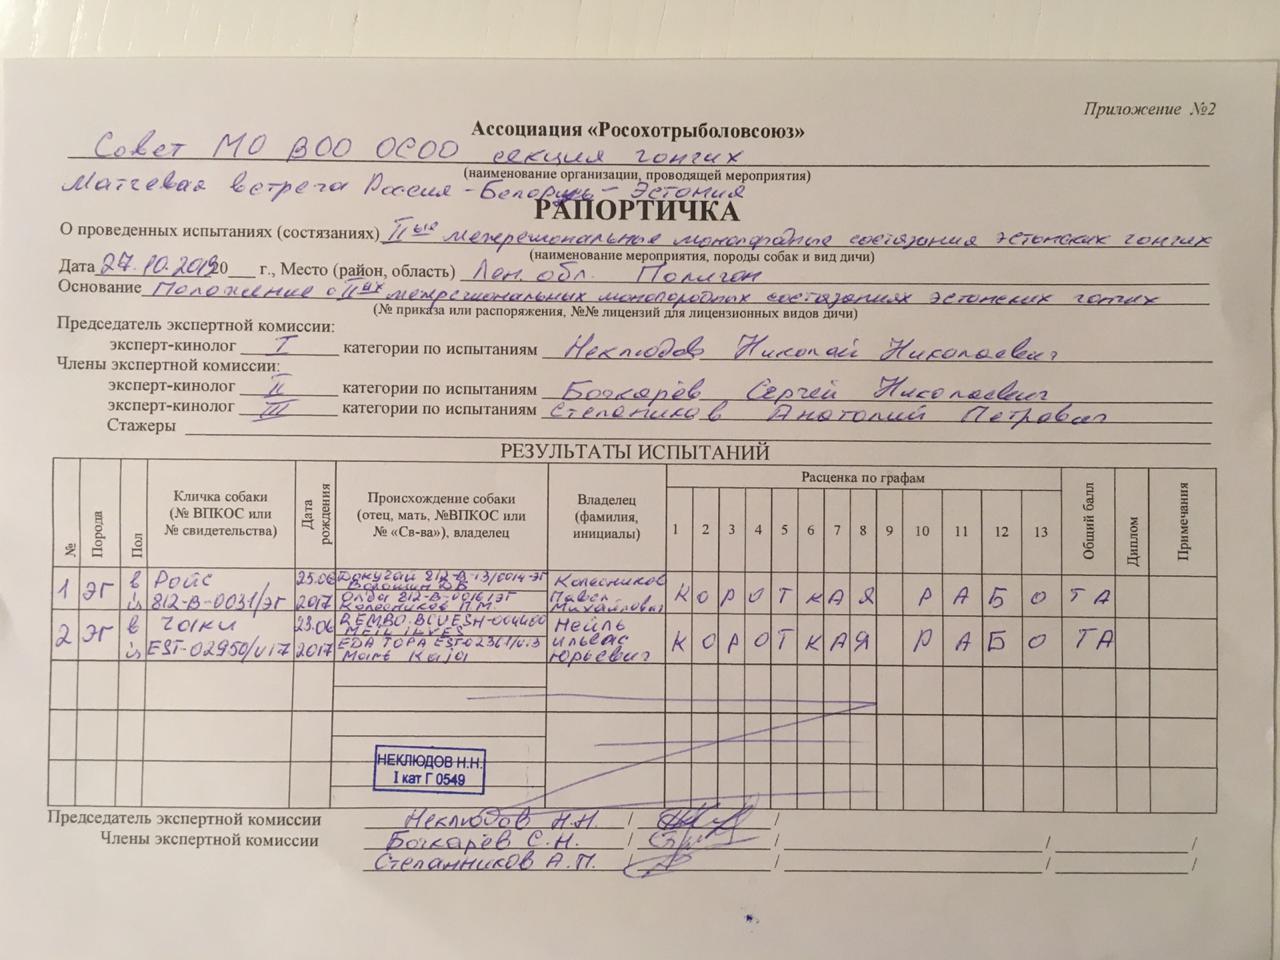 Приложение №2
Ассоциация «Росохотрыболовсоюз»
Совет МО ВОО ОСОО секция гончих
(наименование организации, проводящей мероприятия)
Матчевая встреча Россия - Белорусь - Эстония
РАПОРТИЧКА
О проведенных испытаниях (состязаниях) IIые межрегиональные монопородные состязания эстонских гончих
(наименование мероприятия, породы собак и вид дичи)
Дата 27.10.2019 20___ г., Место (район, область) Лен. обл. Полигон
Основание Положение о IIых межрегиональных монопородных состязаниях эстонских гончих
(№ приказа или распоряжения, №№ лицензий для лицензионных видов дичи)
Председатель экспертной комиссии:
эксперт-кинолог I категории по испытаниям Неклюдов Николай Николаевич
Члены экспертной комиссии:
эксперт-кинолог II категории по испытаниям Бочкарёв Сергей Николаевич
эксперт-кинолог III категории по испытаниям Степаников Анатолий Петрович
Стажеры
РЕЗУЛЬТАТЫ ИСПЫТАНИЙ
№ Порода Пол Кличка собаки (№ ВПКОС или № свидетельства) Дата рождения Происхождение собаки (отец, мать, №ВПКОС или № «Св-ва»), владелец Владелец (фамилия, инициалы) Расценка по графам Общий балл Диплом Примечания
1 2 3 4 5 6 7 8 9 10 11 12 13
1 ЭГ в Ройс 25.06 Докучай 812-В-13/0014-ЭГ Колесников
812-В-0031/ЭГ 2017 Колесников П.М. Павел Михайлович К О Р О Т К А Я Р А Б О Т А
2 ЭГ в Чаки 23.06 REMBO BLUESH-004400 Нейль
EST-02950/017 2017 EDA TOPA Mare Kaja Ильсас Юрьевич К О Р О Т К А Я Р А Б О Т А
НЕКЛЮДОВ Н.Н.
I кат Г 0549
Председатель экспертной комиссии Неклюдов Н.Н. / /
Члены экспертной комиссии Бочкарёв С.Н. / / / /
Степанников А.П. / / / /